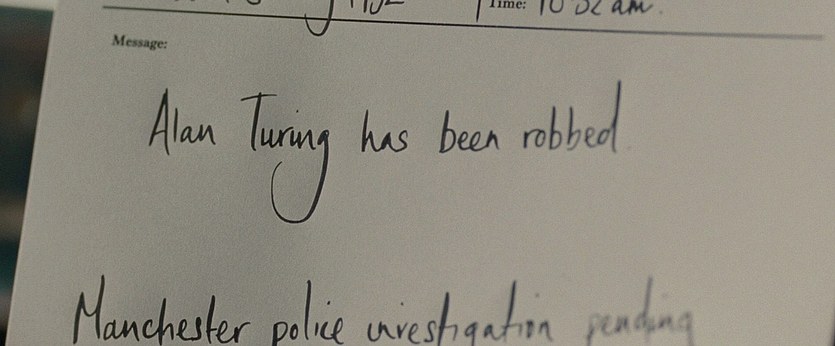 Time: 10 52 am.
Message:
Alan Turing has been robbed
Manchester police investigation pending